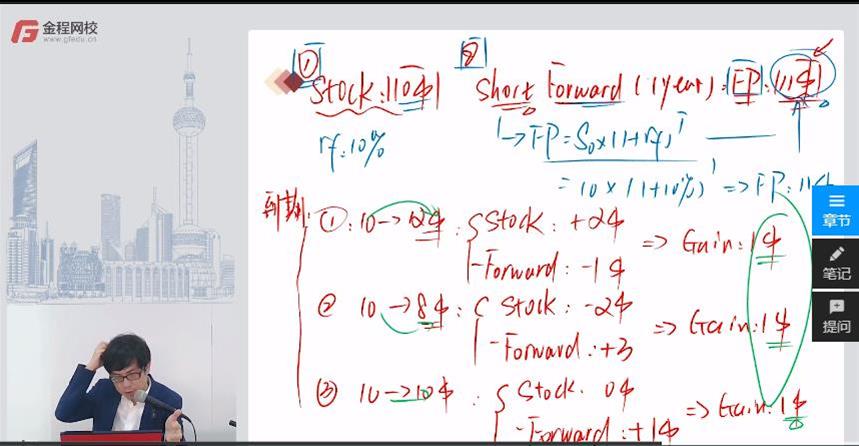 金程网校
www.gfedu.cn
① Stock: 10$ ② Short Forward (1year): FP: 11$
rf: 10% → FP = S₀ × (1+rf)ᵀ
= 10 × (1+10%)¹ => FP: 11$
到期: ①: 10 → 12$: { Stock: +2$
Forward: -1$ => Gain: 1$
② 10 → 8$: { Stock: -2$
Forward: +3 => Gain: 1$
③ 10 → 10$: { Stock. 0$
Forward: +1$ => Gain: 1$
章节
笔记
提问